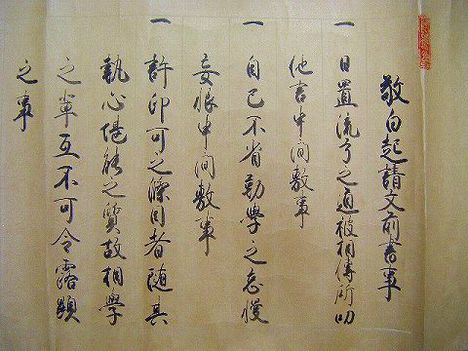 敬白起請文前書事
一 日置流弓之道被相傳所叨
他言申間敷事
一 自己不省勤学之怠慢
妄恨申間敷事
一 許印可之條目者随其
執心堪能之質故相学
之輩互不可令露顕
之事